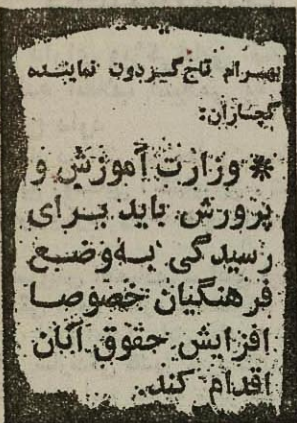 بهرام تاج گردون نماینده
گچساران:
* وزارت آموزش و
پرورش باید برای
رسیدگی به وضع
فرهنگیان خصوصا
افزایش حقوق آنان
اقدام کند.